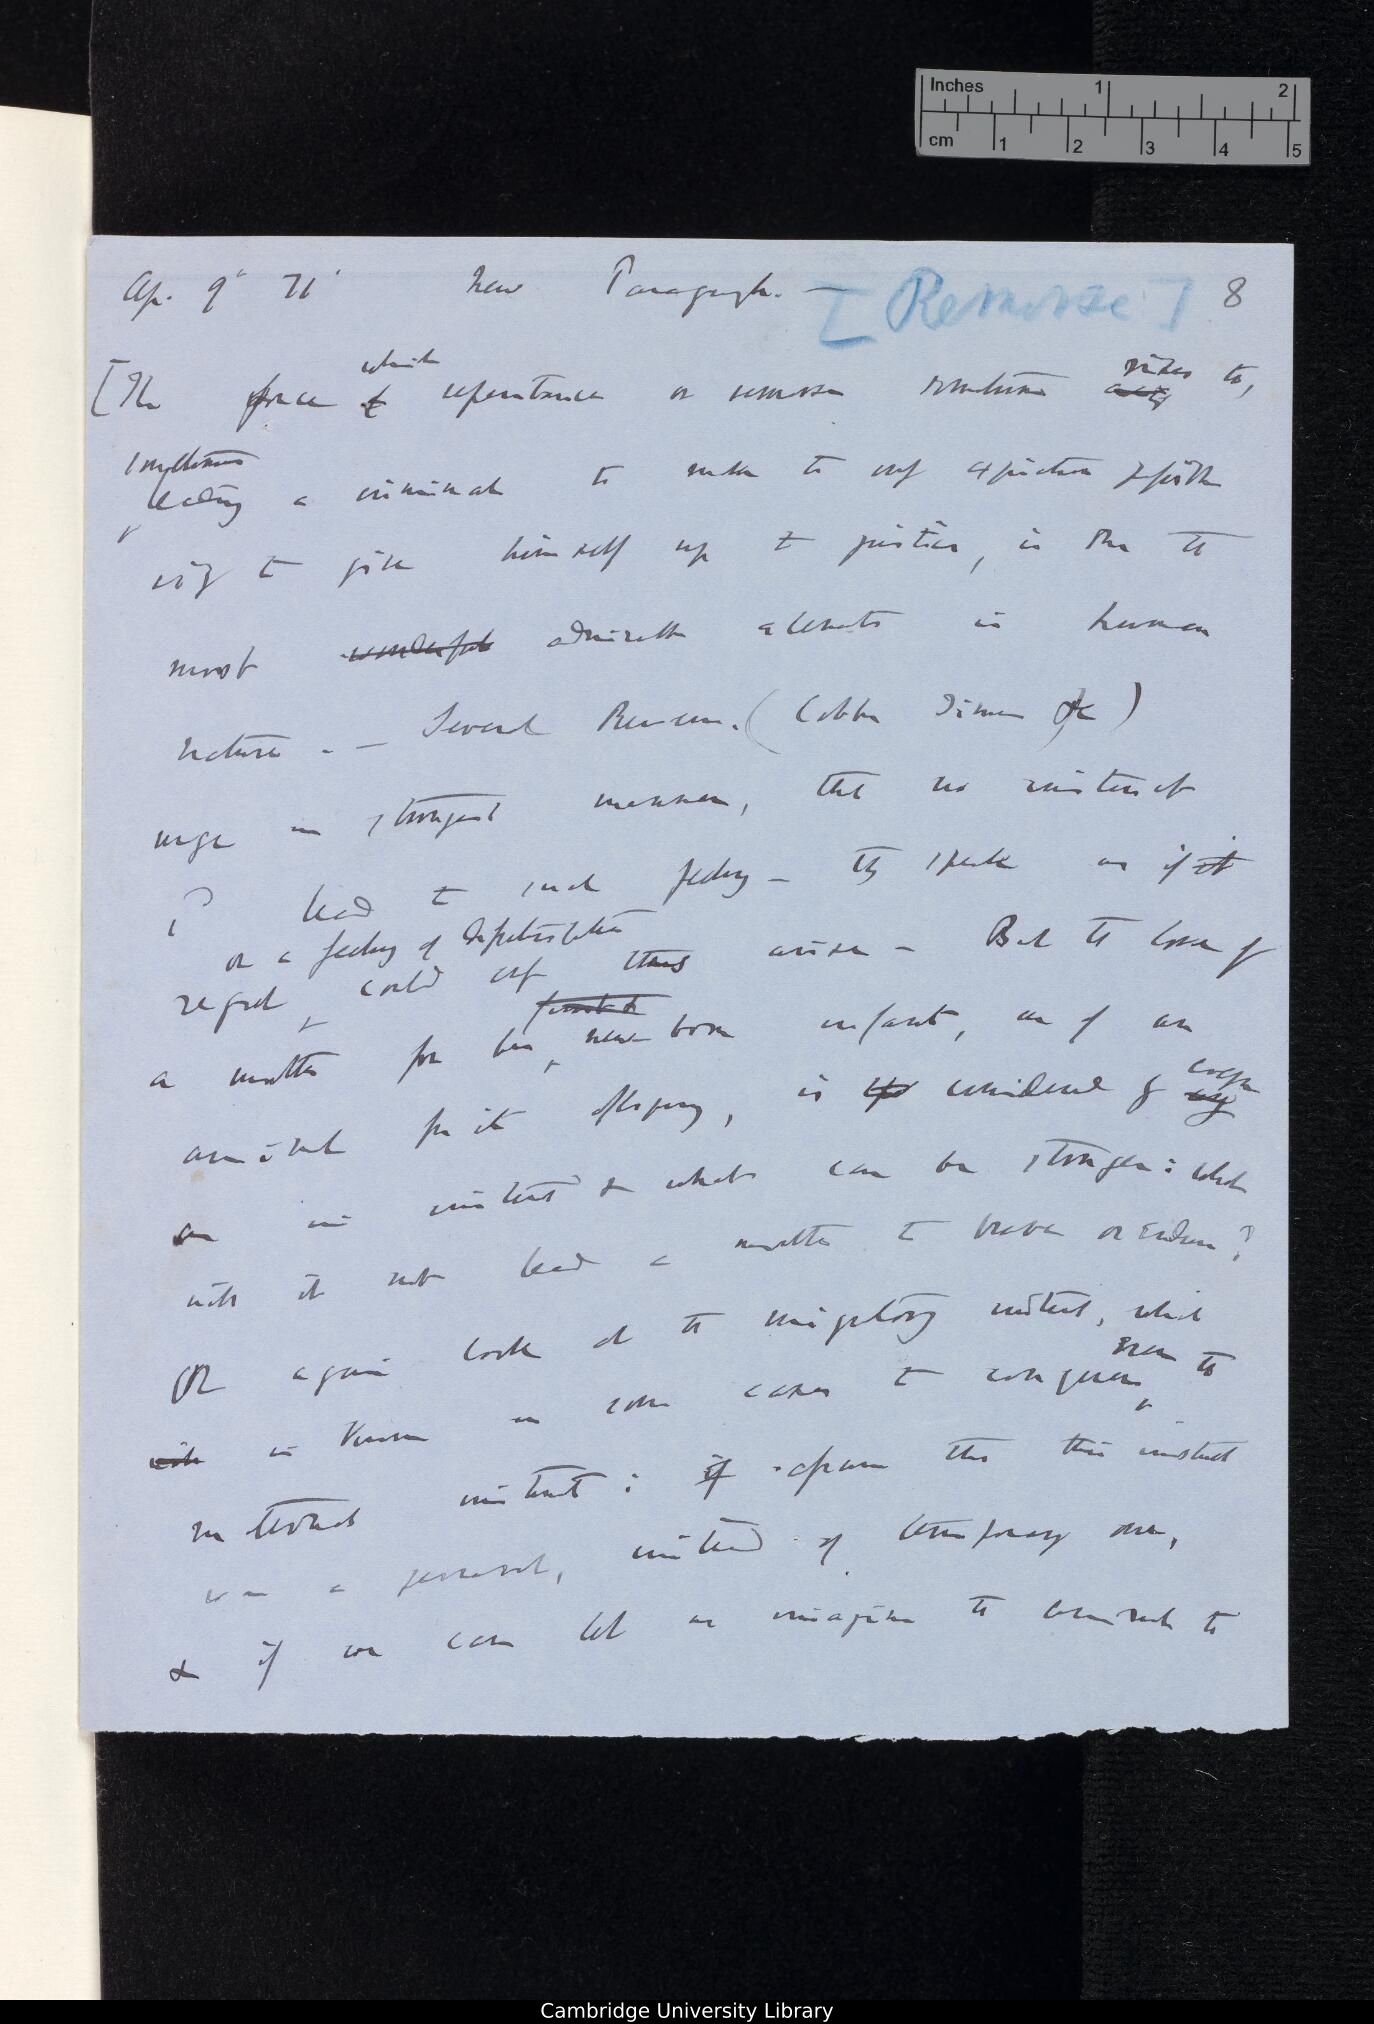 Inches 1 2
cm 1 2 3 4 5
Ap. 9 71 New Paragraph. — [Remorse] 8
which rises to,
[The force repentance or remorse sometimes
sometimes
leading a criminal to make to only
to give himself up to justice, is one of the
most wonderful admirable in human
nature. — Several Reviewers. (Cobbe Times &c)
urge in strongest manner, that no instinct
lead to such feeling — they speak as if it
or a feeling of
regret, could only thus arise — But the love of
a mother for her new born infant, as of an
even
animal for its offspring, is considered by
as an instinct & what can be stronger: what
will it not lead a mother to brave or endure?
Or again look at the migratory instinct, which
even the
is known in some cases to conquer
maternal instinct: if suppose that this instinct
was a general, instead of temporary one,
& if we can let us imagine the animal to
Cambridge University Library